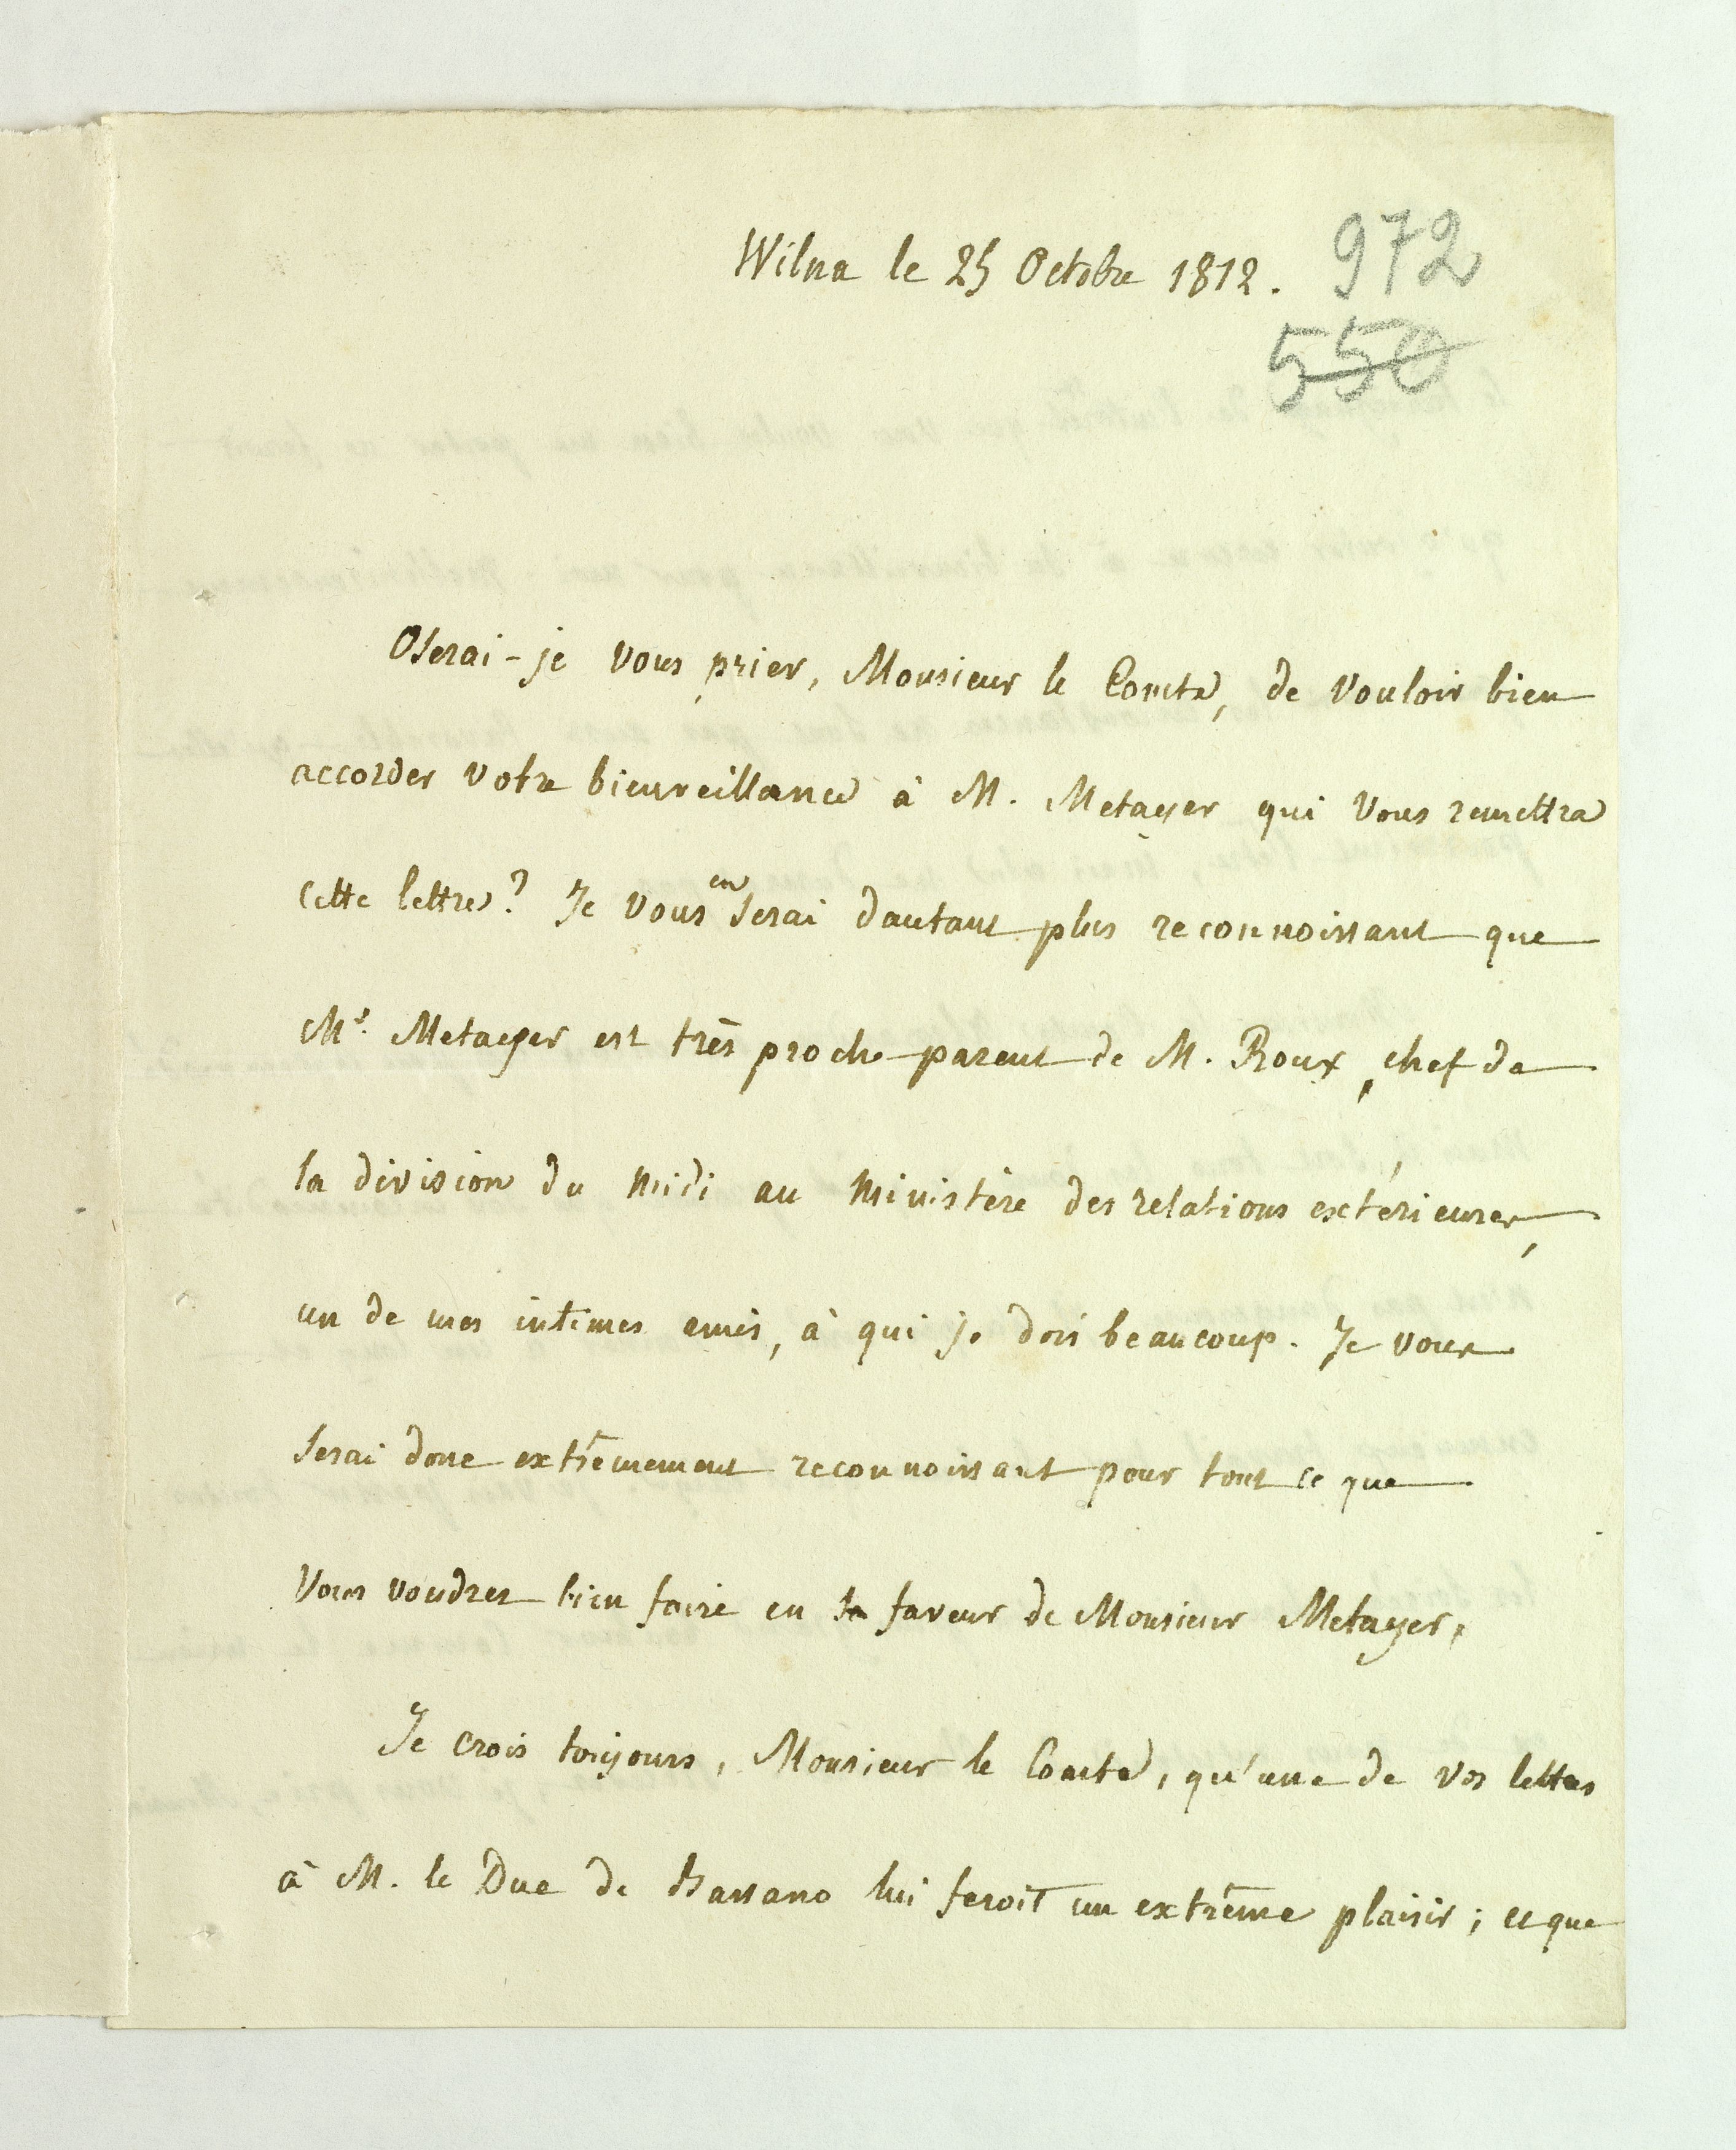 Wilna le 25 Octobre 1812.
972
550
Oserai-je vous prier, Monsieur le Comte, de vouloir bien
accorder votre bienveillance à M. Metayer qui vous remettra
cette lettre? Je vous en serai dautant plus reconnoissant que
Mr. Metayer est très proche parent de M. Roux, chef de
la division du midi au ministère des relations extérieures,
un de mes intimes amis, à qui je dois beaucoup. Je vous
serai donc extrêmement reconnoissant pour tout ce que
vous voudrez bien faire en sa faveur de Monsieur Metayer,
Je crois toujours, Monsieur le Comte, qu'une de vos lettres
à M. le Duc de Bassano lui feroit un extrême plaisir; ce que